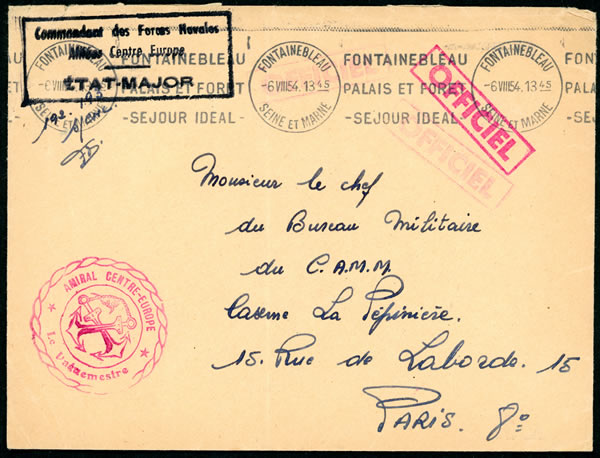 Commandant des Forces Navales
Alliées Centre Europe
ÉTAT-MAJOR
FONTAINEBLEAU
-6 VIII 54. 13 45
SEINE ET MARNE
FONTAINEBLEAU
PALAIS ET FORET
-SEJOUR IDEAL-
FONTAINEBLEAU
-6 VIII 54. 13 45
SEINE ET MARNE
FONTAINEBLEAU
PALAIS ET FORET
-SEJOUR IDEAL-
FONTAINEBLEAU
-6 VIII 54. 13 45
SEINE ET MARNE
FON
PAL
-S
OFFICIEL
OFFICIEL
Monsieur le chef
du Bureau Militaire
du C.A.M.M.
Caserne La Pépinière.
15. Rue de Laborde. 15
PARIS. 8º
AMIRAL CENTRE-EUROPE
Le Vaguemestre